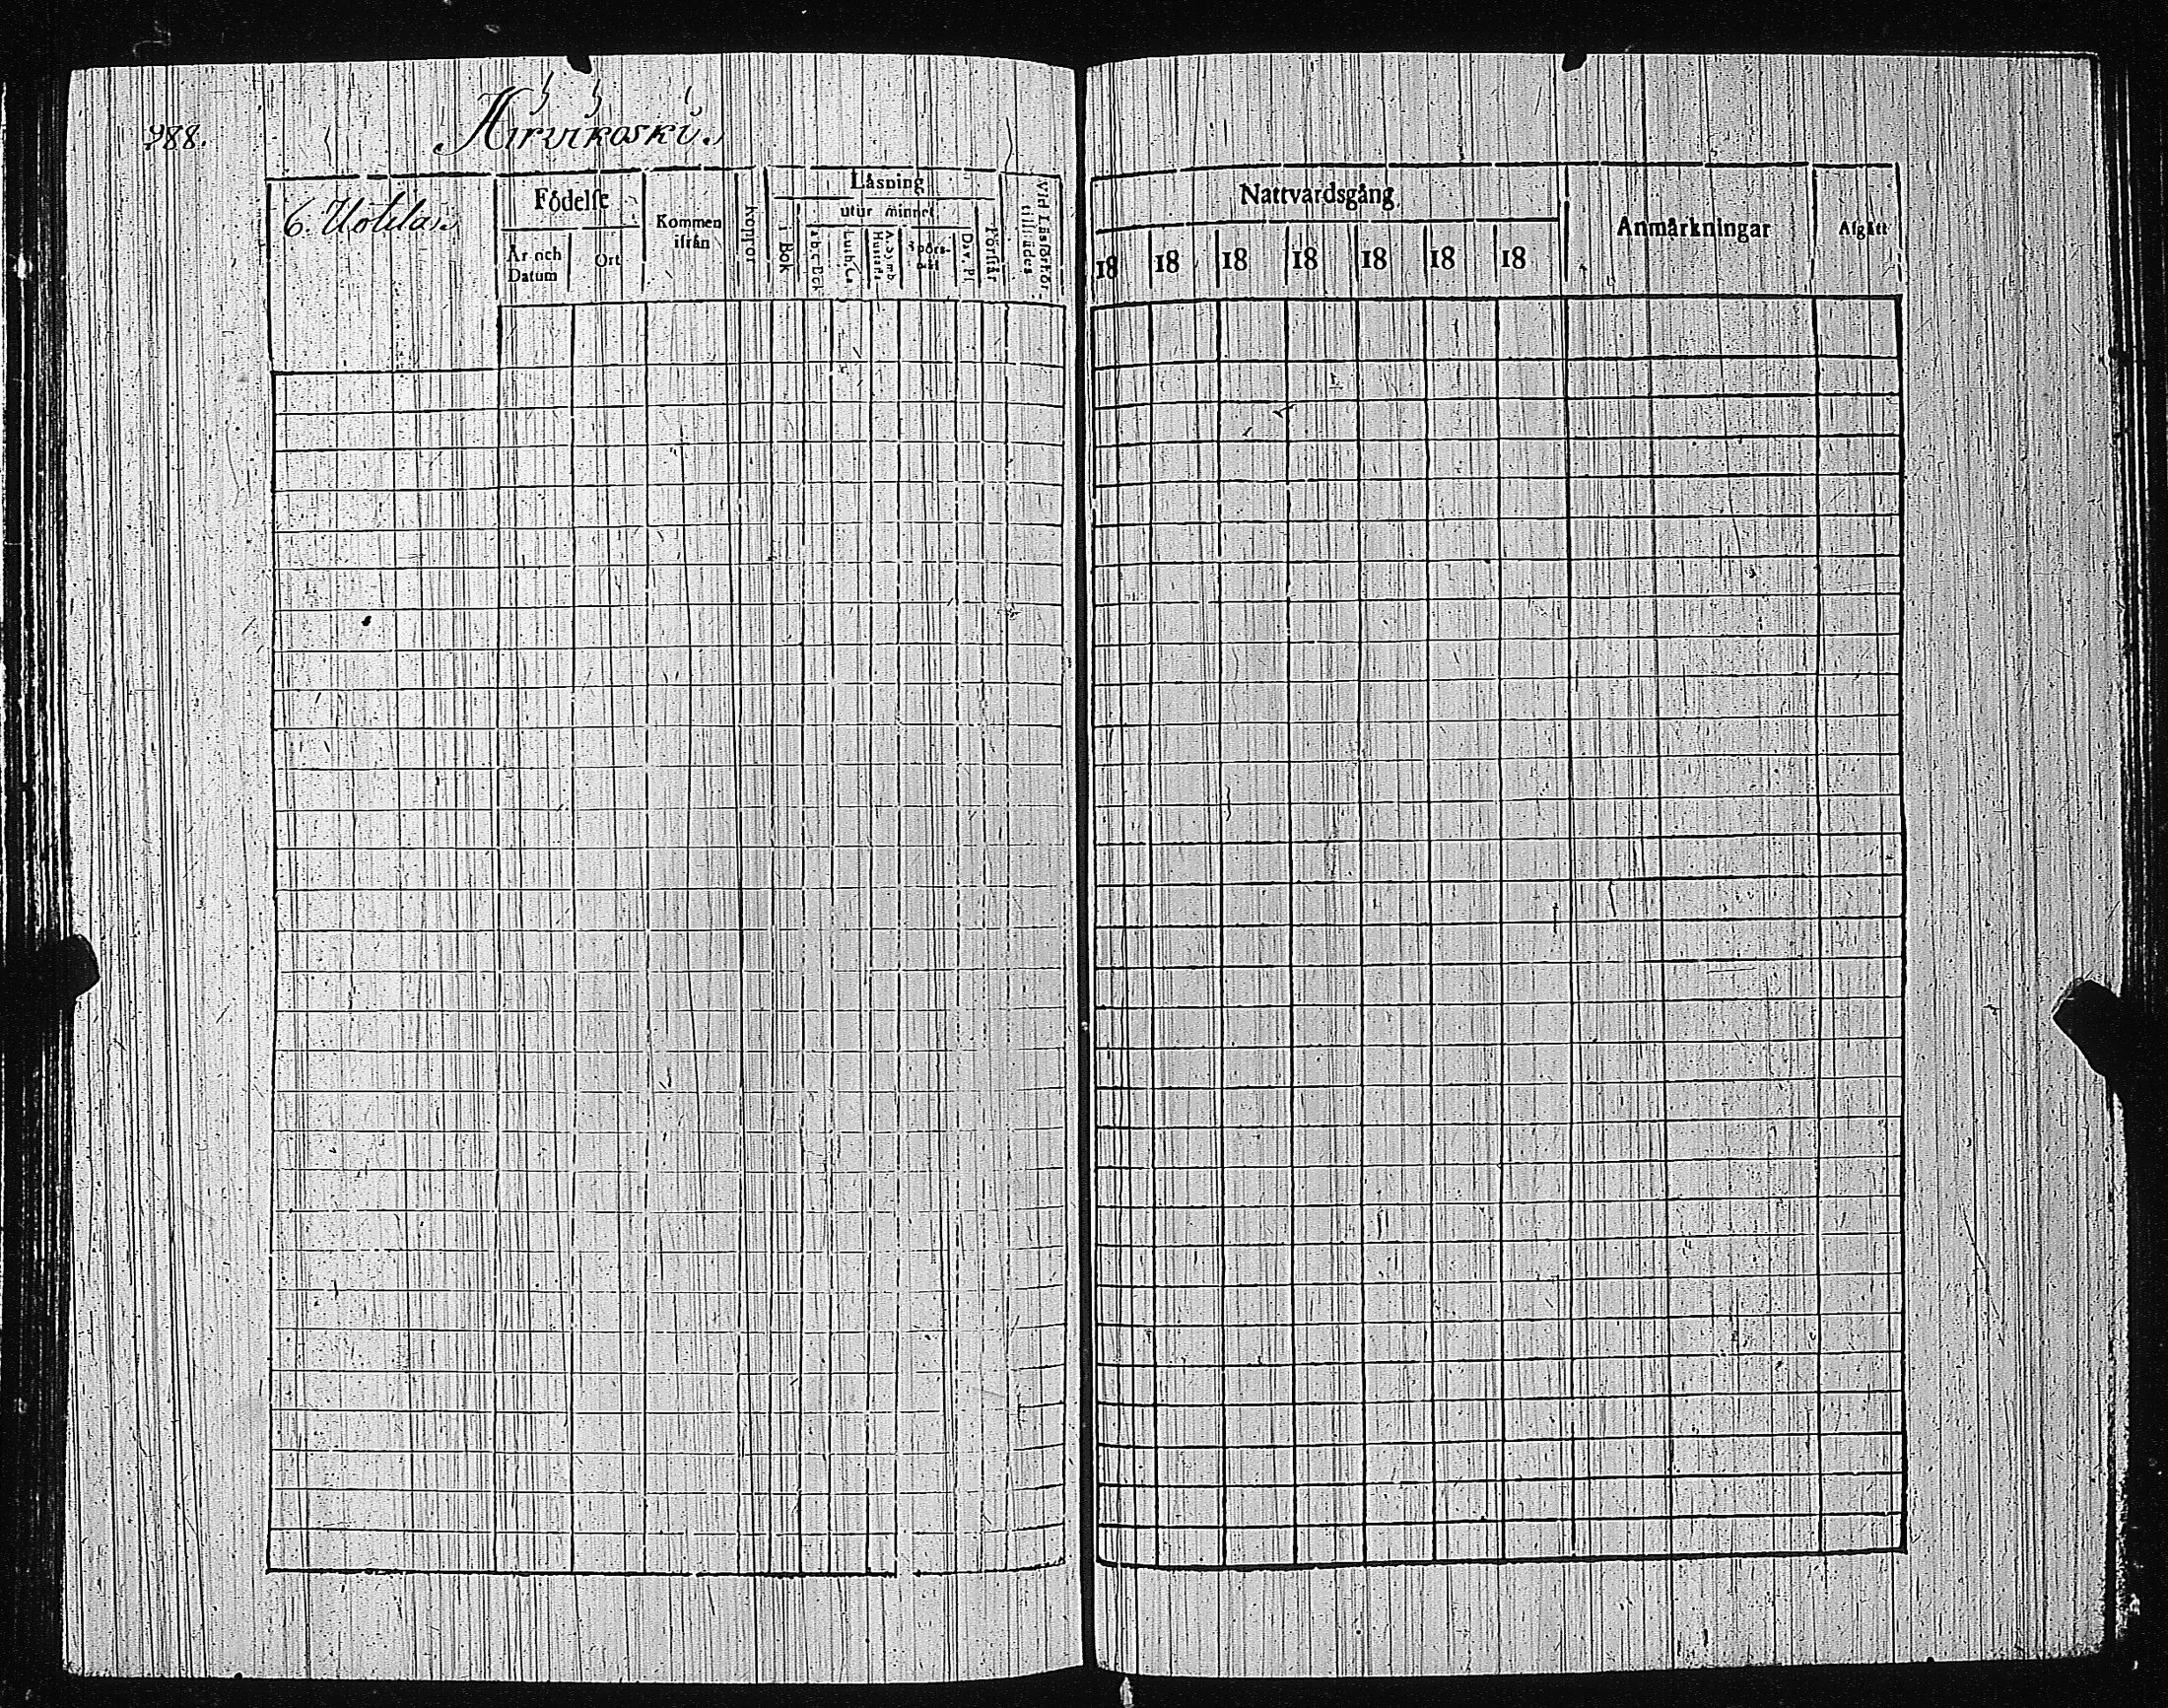 288.
Hirvikoski.
6. Uotilan
Födelse
År och Datum
Ort
Kommen ifrån
Koppor
Läsning
i Bok
utur minnet
a.b.c. Bok
Luth. Ca.
Hustafla
A. Symb.
Spörs-
Dav. Ps.
Förstår
Vid Läsförhör
tillstädes
Nattvardsgång
18 18 18 18 18 18 18
Anmärkningar
Afgått